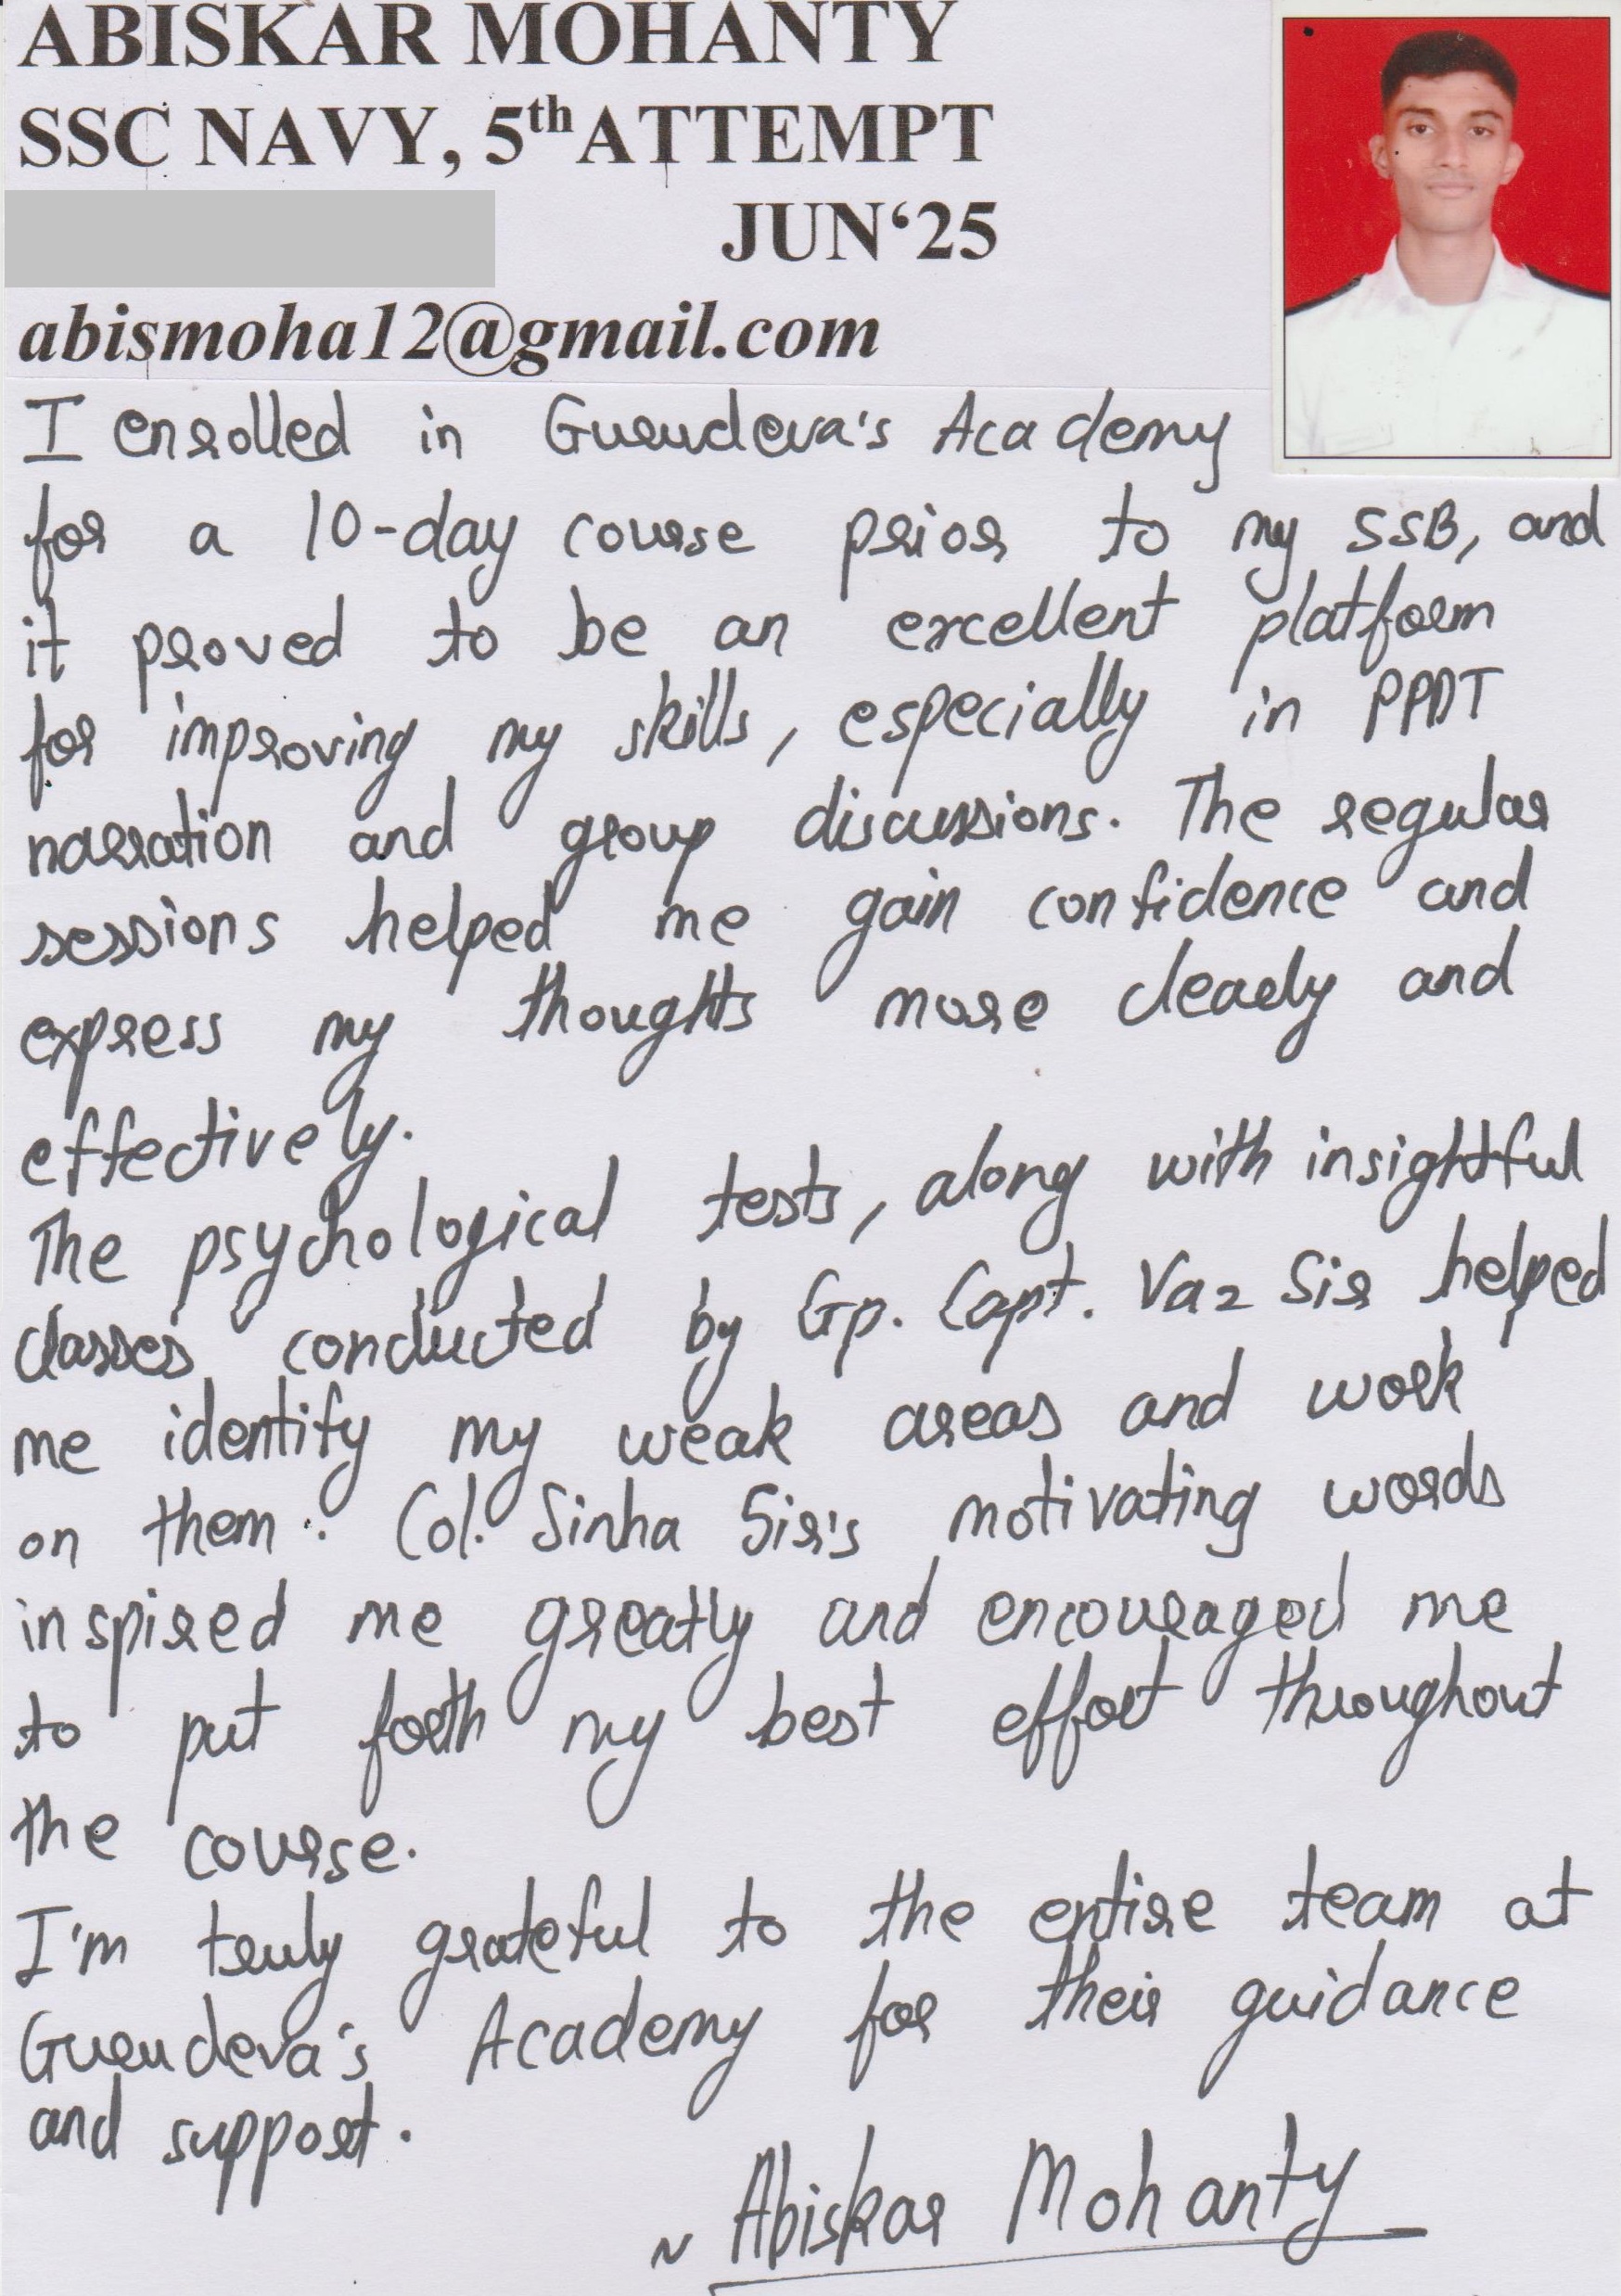 ABISKAR MOHANTY
SSC NAVY, 5th ATTEMPT
JUN‘25
abismoha12@gmail.com
I enrolled in Gurudeva's Academy
for a 10-day course prior to my SSB, and
it proved to be an excellent platform
for improving my skills, especially in PPDT
narration and group discussions. The regular
sessions helped me gain confidence and
express my thoughts more clearly and
effectively.
The psychological tests, along with insightful
classes conducted by Gp. Capt. Vaz Sir helped
me identify my weak areas and work
on them. Col. Sinha Sir's motivating words
inspired me greatly and encouraged me
to put forth my best effort throughout
the course.
I'm truly grateful to the entire team at
Gurudeva's Academy for their guidance
and support.
~ Abiskar Mohanty